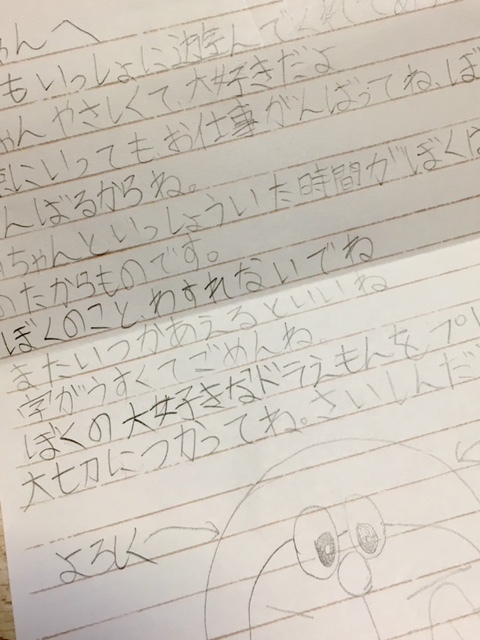 ちゃんへ
もいっしょに遊んでくれてあ
ちゃん やさしくて、大好きだよ
にいっても、お仕事がんばってね、ぼ
んばるからね。
ちゃんといっしょういた時間がぼくは
のたからものです。
ぼくのこと、わすれないでね
またいつかあえるといいね
字がうすくてごめんね。
ぼくの大好きなドラえもんをプレ
大切につかってね。さいしんだ
よろしく